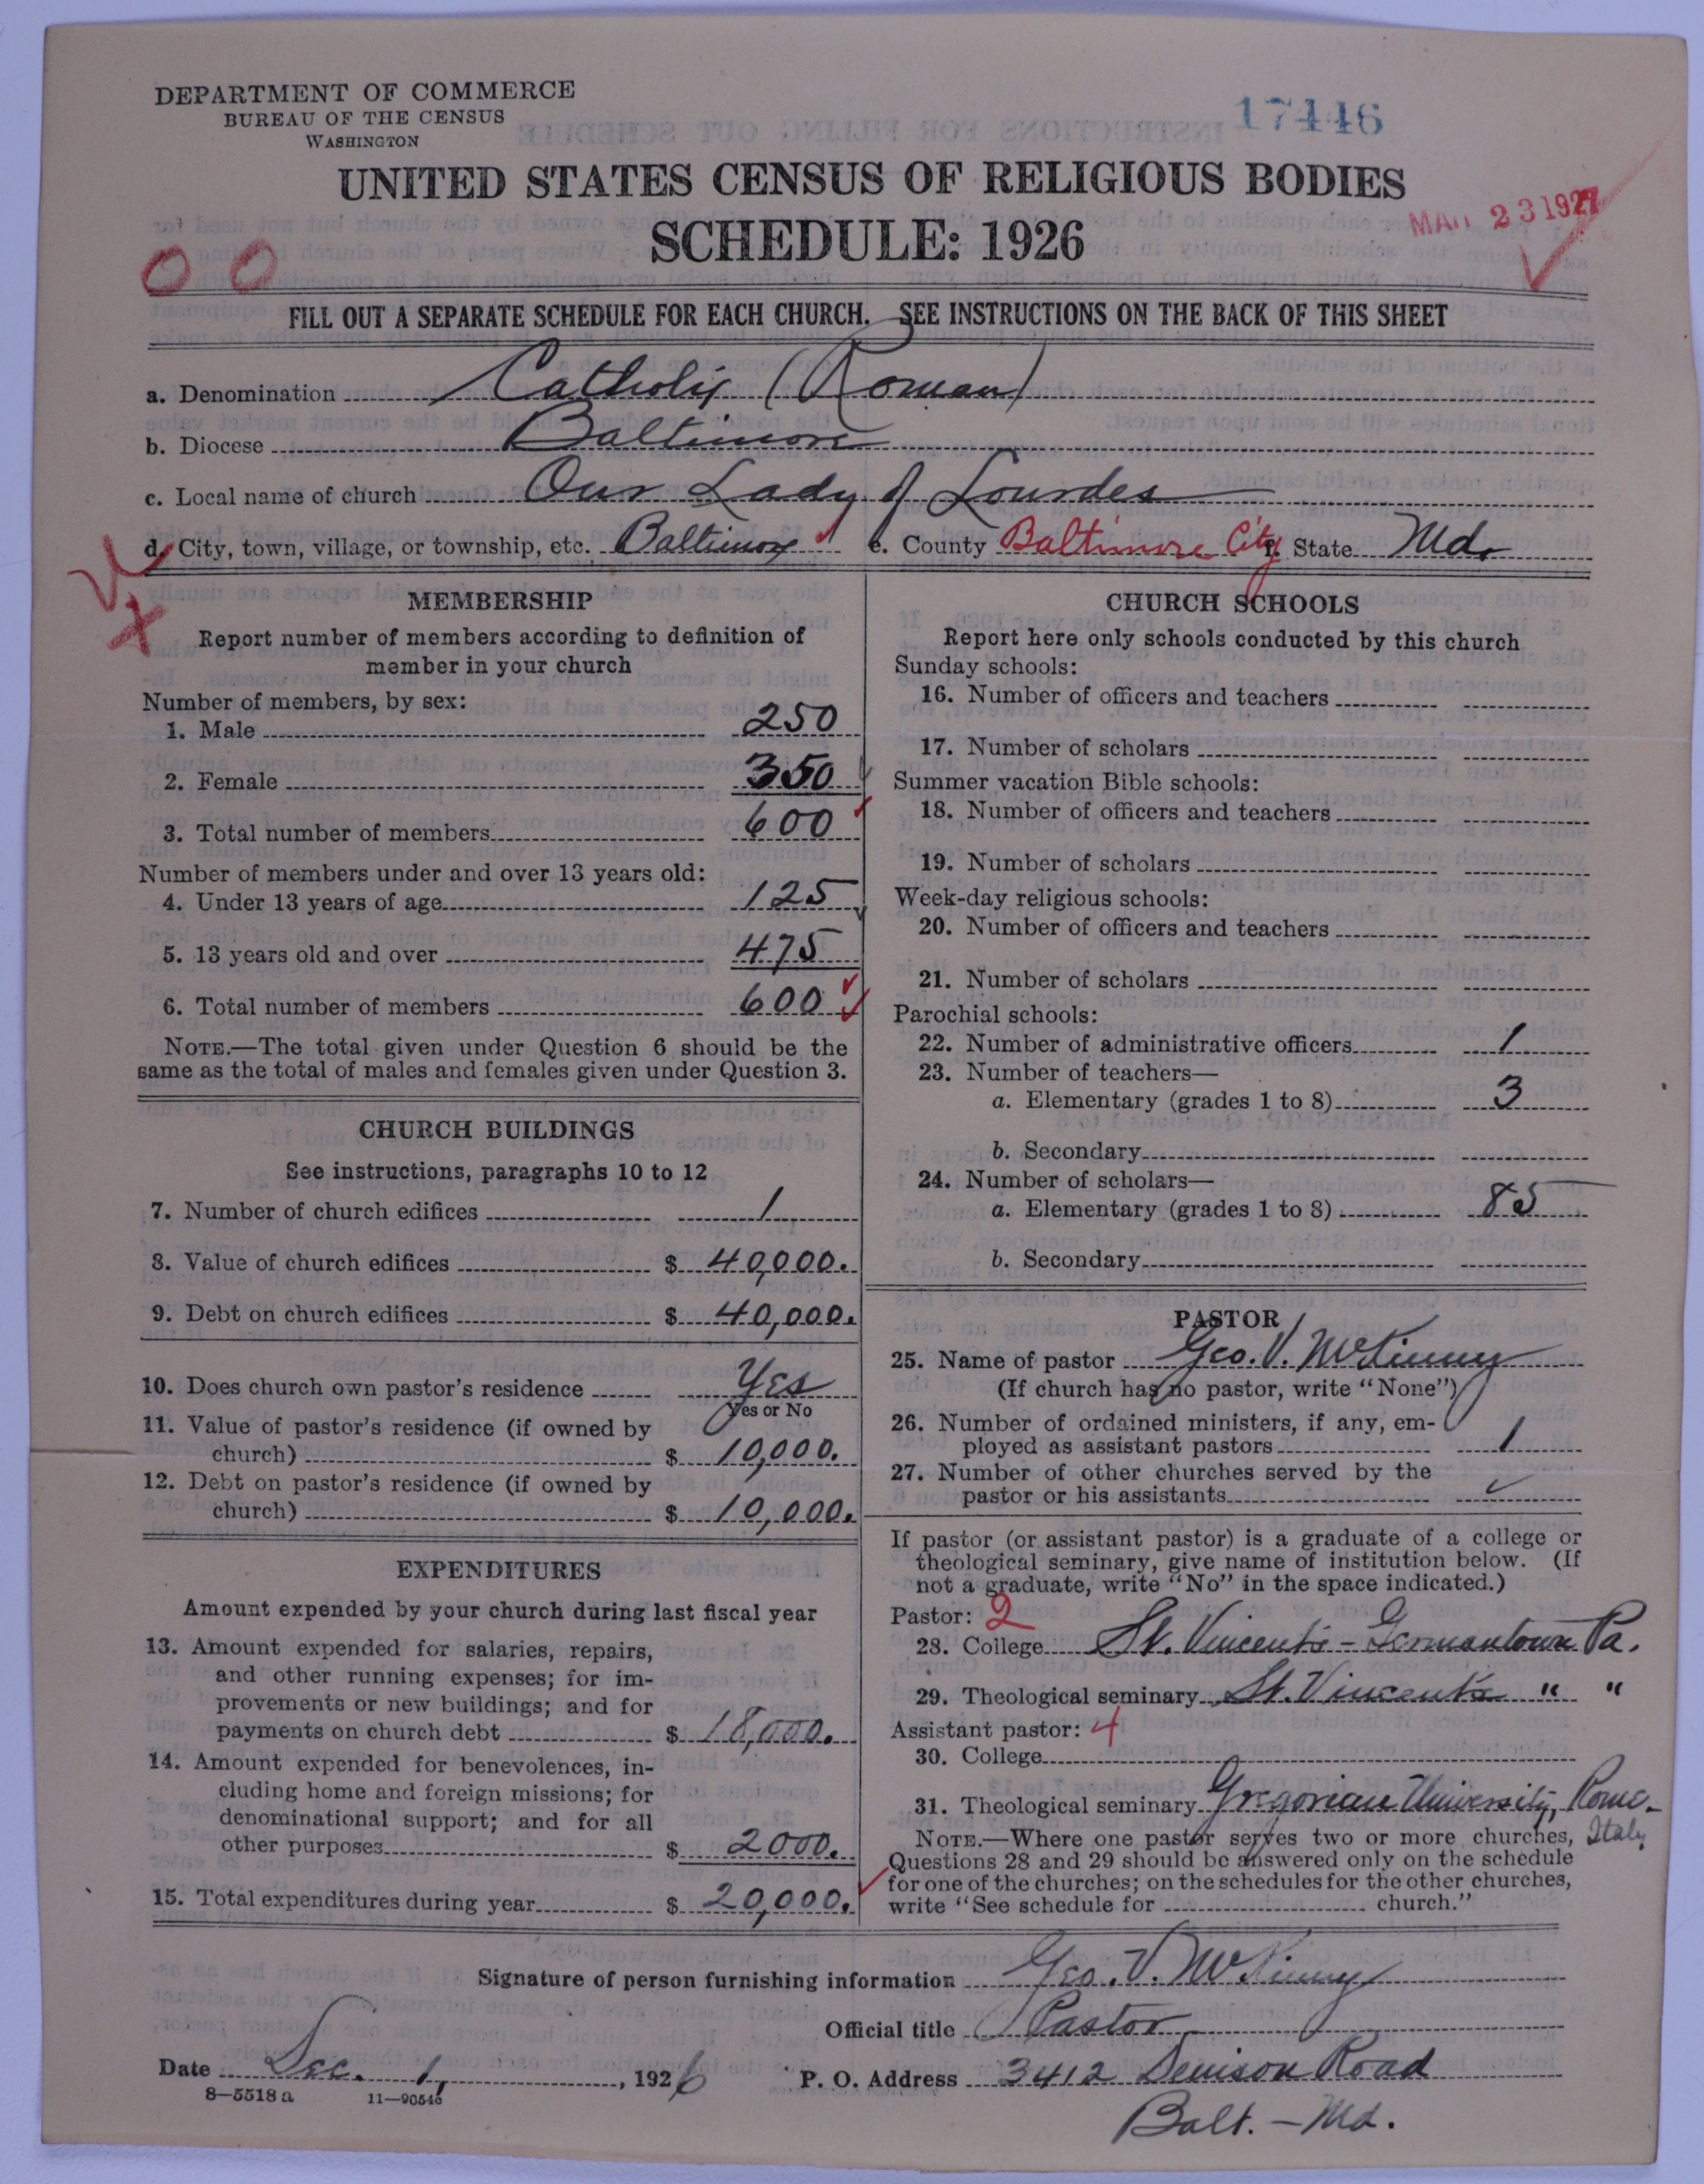 DEPARTMENT OF COMMERCE
BUREAU OF THE CENSUS
WASHINGTON
17446
UNITED STATES CENSUS OF RELIGIOUS BODIES
SCHEDULE: 1926
MAR 23 1927
0 0
FILL OUT A SEPARATE SCHEDULE FOR EACH CHURCH. SEE INSTRUCTIONS ON THE BACK OF THIS SHEET
a. Denomination Catholic (Roman)
b. Diocese Baltimore
c. Local name of church Our Lady of Lourdes
d. City, town, village, or township, etc. Baltimore e. County Baltimore City f. State Md.
MEMBERSHIP
Report number of members according to definition of
member in your church
Number of members, by sex:
1. Male 250
2. Female 350
3. Total number of members 600
Number of members under and over 13 years old:
4. Under 13 years of age 125
5. 13 years old and over 475
6. Total number of members 600
NOTE.—The total given under Question 6 should be the
same as the total of males and females given under Question 3.
CHURCH BUILDINGS
See instructions, paragraphs 10 to 12
7. Number of church edifices 1
8. Value of church edifices $ 40,000.
9. Debt on church edifices $ 40,000.
10. Does church own pastor's residence Yes
Yes or No
11. Value of pastor's residence (if owned by
church) $ 10,000.
12. Debt on pastor's residence (if owned by
church) $ 10,000.
EXPENDITURES
Amount expended by your church during last fiscal year
13. Amount expended for salaries, repairs,
and other running expenses; for im-
provements or new buildings; and for
payments on church debt $ 18,000.
14. Amount expended for benevolences, in-
cluding home and foreign missions; for
denominational support; and for all
other purposes $ 2000.
15. Total expenditures during year $ 20,000.
CHURCH SCHOOLS
Report here only schools conducted by this church
Sunday schools:
16. Number of officers and teachers
17. Number of scholars
Summer vacation Bible schools:
18. Number of officers and teachers
19. Number of scholars
Week-day religious schools:
20. Number of officers and teachers
21. Number of scholars
Parochial schools:
22. Number of administrative officers 1
23. Number of teachers—
a. Elementary (grades 1 to 8) 3
b. Secondary
24. Number of scholars—
a. Elementary (grades 1 to 8) 85
b. Secondary
PASTOR
25. Name of pastor Geo. V. McKinny
(If church has no pastor, write "None")
26. Number of ordained ministers, if any, em-
ployed as assistant pastors 1
27. Number of other churches served by the
pastor or his assistants
If pastor (or assistant pastor) is a graduate of a college or
theological seminary, give name of institution below. (If
not a graduate, write "No" in the space indicated.)
Pastor: 2
28. College St. Vincent's - Germantown Pa.
29. Theological seminary St. Vincent's " "
Assistant pastor: 4
30. College
31. Theological seminary Gregorian University, Rome.
Italy
NOTE.—Where one pastor serves two or more churches,
Questions 28 and 29 should be answered only on the schedule
for one of the churches; on the schedules for the other churches,
write "See schedule for church."
Signature of person furnishing information Geo. V. McKinny
Official title Pastor
Date Dec. 1, 1926 P. O. Address 3412 Denison Road
8—5518 a 11—90546
Balt. - Md.